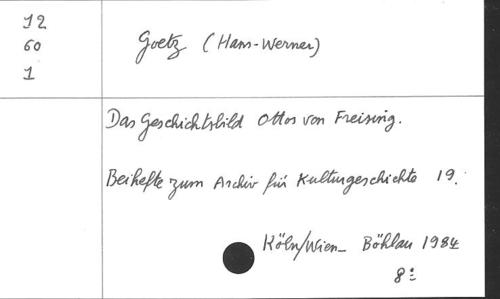 12
60
1
Goetz (Hans-Werner)
Das Geschichtsbild Ottos von Freising.
Beihefte zum Archiv für Kulturgeschichte 19.
Köln/Wien_ Böhlau 1984
8º